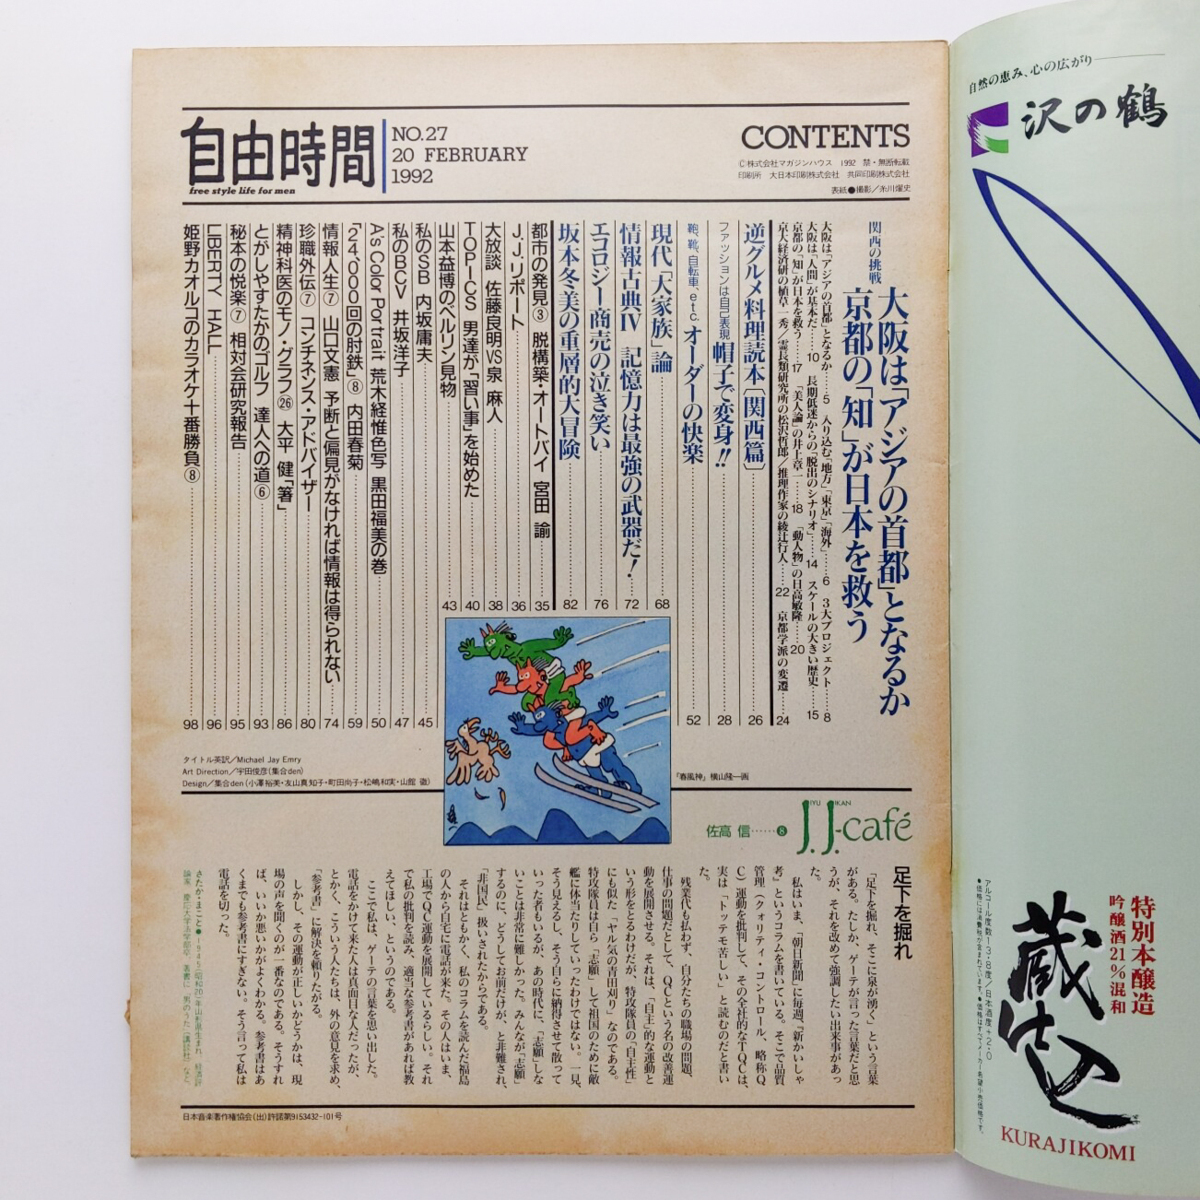 自由時間
free style life for men
NO.27
20 FEBRUARY
1992
CONTENTS
©株式会社マガジンハウス 1992 禁・無断転載
印刷所 大日本印刷株式会社 共同印刷株式会社
表紙●撮影/糸川燿史
関西の挑戦
大阪は「アジアの首都」となるか
京都の「知」が日本を救う
大阪は「アジアの首都」となるか……5 入り込む「地方」「東京」「海外」…6 3大プロジェクト……8
大阪は「人間」が基本だ……10 長期低迷からの「脱出のシナリオ」……14 スケールの大きい歴史……15
京都の「知」が日本を救う……17 「美人論」の井上章一……18 「動人物」の日高敏隆……20
京大経済研の植草一秀/霊長類研究所の松沢哲郎/推理作家の綾辻行人……22 京都学派の変遷……24
逆グルメ料理読本〔関西篇〕……26
ファッションは自己表現 帽子で変身!!……28
鞄、靴、自転車、etc. オーダーの快楽……52
現代「大家族」論……68
情報古典Ⅳ 記憶力は最強の武器だ!……72
エコロジー商売の泣き笑い……76
坂本冬美の重層的大冒険……82
都市の発見③ 脱構築・オートバイ 宮田 諭……35
J.J.リポート……36
大放談 佐藤良明VS泉 麻人……38
TOPICS 男達が「習い事」を始めた……40
山本益博のベルリン見物……43
私のSB 内坂庸夫……45
私のBCV 井坂洋子……47
A's Color Portrait 荒木経惟色写 黒田福美の巻……50
「24,000回の肘鉄」⑧ 内田春菊……59
情報人生⑦ 山口文憲 予断と偏見がなければ情報は得られない……74
珍職外伝⑦ コンチネンス・アドバイザー……80
精神科医のモノ・グラフ㉖ 大平 健「箸」……86
とがしやすたかのゴルフ 達人への道⑥……93
秘本の悦楽⑦ 相対会研究報告……95
LIBERTY HALL……96
姫野カオルコのカラオケ十番勝負⑧……98
タイトル英訳/Michael Jay Emry
Art Direction/宇田俊彦(集合den)
Design/集合den(小澤裕美・友山真知子・町田尚子・松嶋和実・山館 徹)
『春風神』横山隆一画
JIYU JIKAN
J.J.-café
佐高 信……❽
足下を掘れ
「足下を掘れ、そこに泉が湧く」という言葉
がある。たしか、ゲーテが言った言葉だと思
うが、それを改めて強調したい出来事があっ
た。
私はいま、「朝日新聞」に毎週、『新かいしゃ
考』というコラムを書いている。そこで品質
管理(クォリティ・コントロール、略称Q
C)運動を批判して、その全社的なTQCは、
実は「トッテモ苦しい」と読むのだと書い
た。
残業代も払わず、自分たちの職場の問題、
仕事の問題だとして、QCという名の改善運
動を展開させる。それは、「自主」的な運動と
いう形をとるわけだが、特攻隊員の「自主性」
にも似た「ヤル気の青田刈り」なのである。
特攻隊員は自ら「志願」して祖国のために敵
艦に体当たりしていったわけではない。一見、
そう見えるし、そう自らに納得させて散って
いった者もいるが、あの時代に、「志願」しな
いことは非常に難しかった。みんなが「志願」
するのに、どうしてお前だけが、と非難され、
「非国民」扱いされたからである。
それはともかく、私のコラムを読んだ福島
の人から自宅に電話が来た。その人はいま、
工場でQC運動を展開しているらしい。それ
で私の批判を読み、適当な参考書があれば教
えてほしい、というのである。
ここで私は、ゲーテの言葉を思い出した。
電話をかけて来た人は真面目な人だったが、
とかく、こういう人たちは、外の意見を求め、
「参考書」に解決を頼りたがる。
しかし、その運動が正しいかどうかは、現
場の声を聞くのが一番なのである。そうすれ
ば、いいか悪いかがよくわかる。参考書はあ
くまでも参考書にすぎない。そう言って私は
電話を切った。
さたか・まこと●1945(昭和20)年山形県生まれ。経済評
論家。慶応大学法学部卒。著書に『男のうた』(講談社)など。
日本音楽著作権協会(出)許諾第9153432-101号
自然の恵み、心の広がり
沢の鶴
特別本醸造
吟醸酒21%混和
蔵生込
KURAJIKOMI
アルコール度数13・8度/日本酒度+2・0